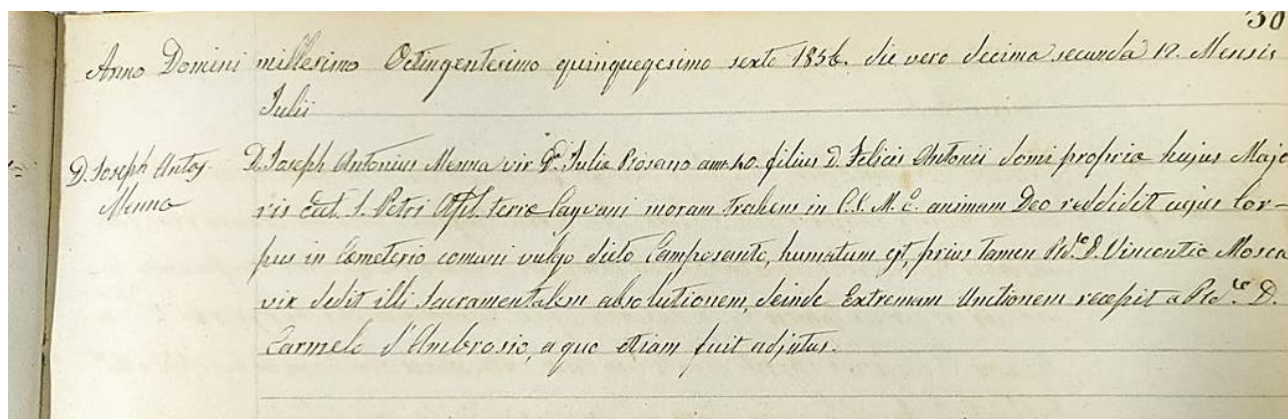 30
Anno Domini millesimo Octingentesimo quinquegesimo sexto 1856. die vero decima secunda 12. Mensis
Julii
D. Joseph Antoṣ. D. Joseph Antonius Menna vir Dᵃ. Julia Rosano ann: 40. filius D. Felicis Antonii domi propria hujus Majo
Menna ris Eccl. S. Petri Apl. terræ Cayvani moram trahens in C. S. M. E. animam Deo reddidit cujus Cor-
pus in Cemeterio comuni vulgo dicto Camposanto, humatum est, prius tamen Rdᵒ. D. Vincentio Mosca
vix dedit illi Sacramentalem absolutionem, deinde Extremam Unctionem recepit a Rdᵒ. D.
Carmelo d'Ambrosio, a quo etiam fuit adjutus.